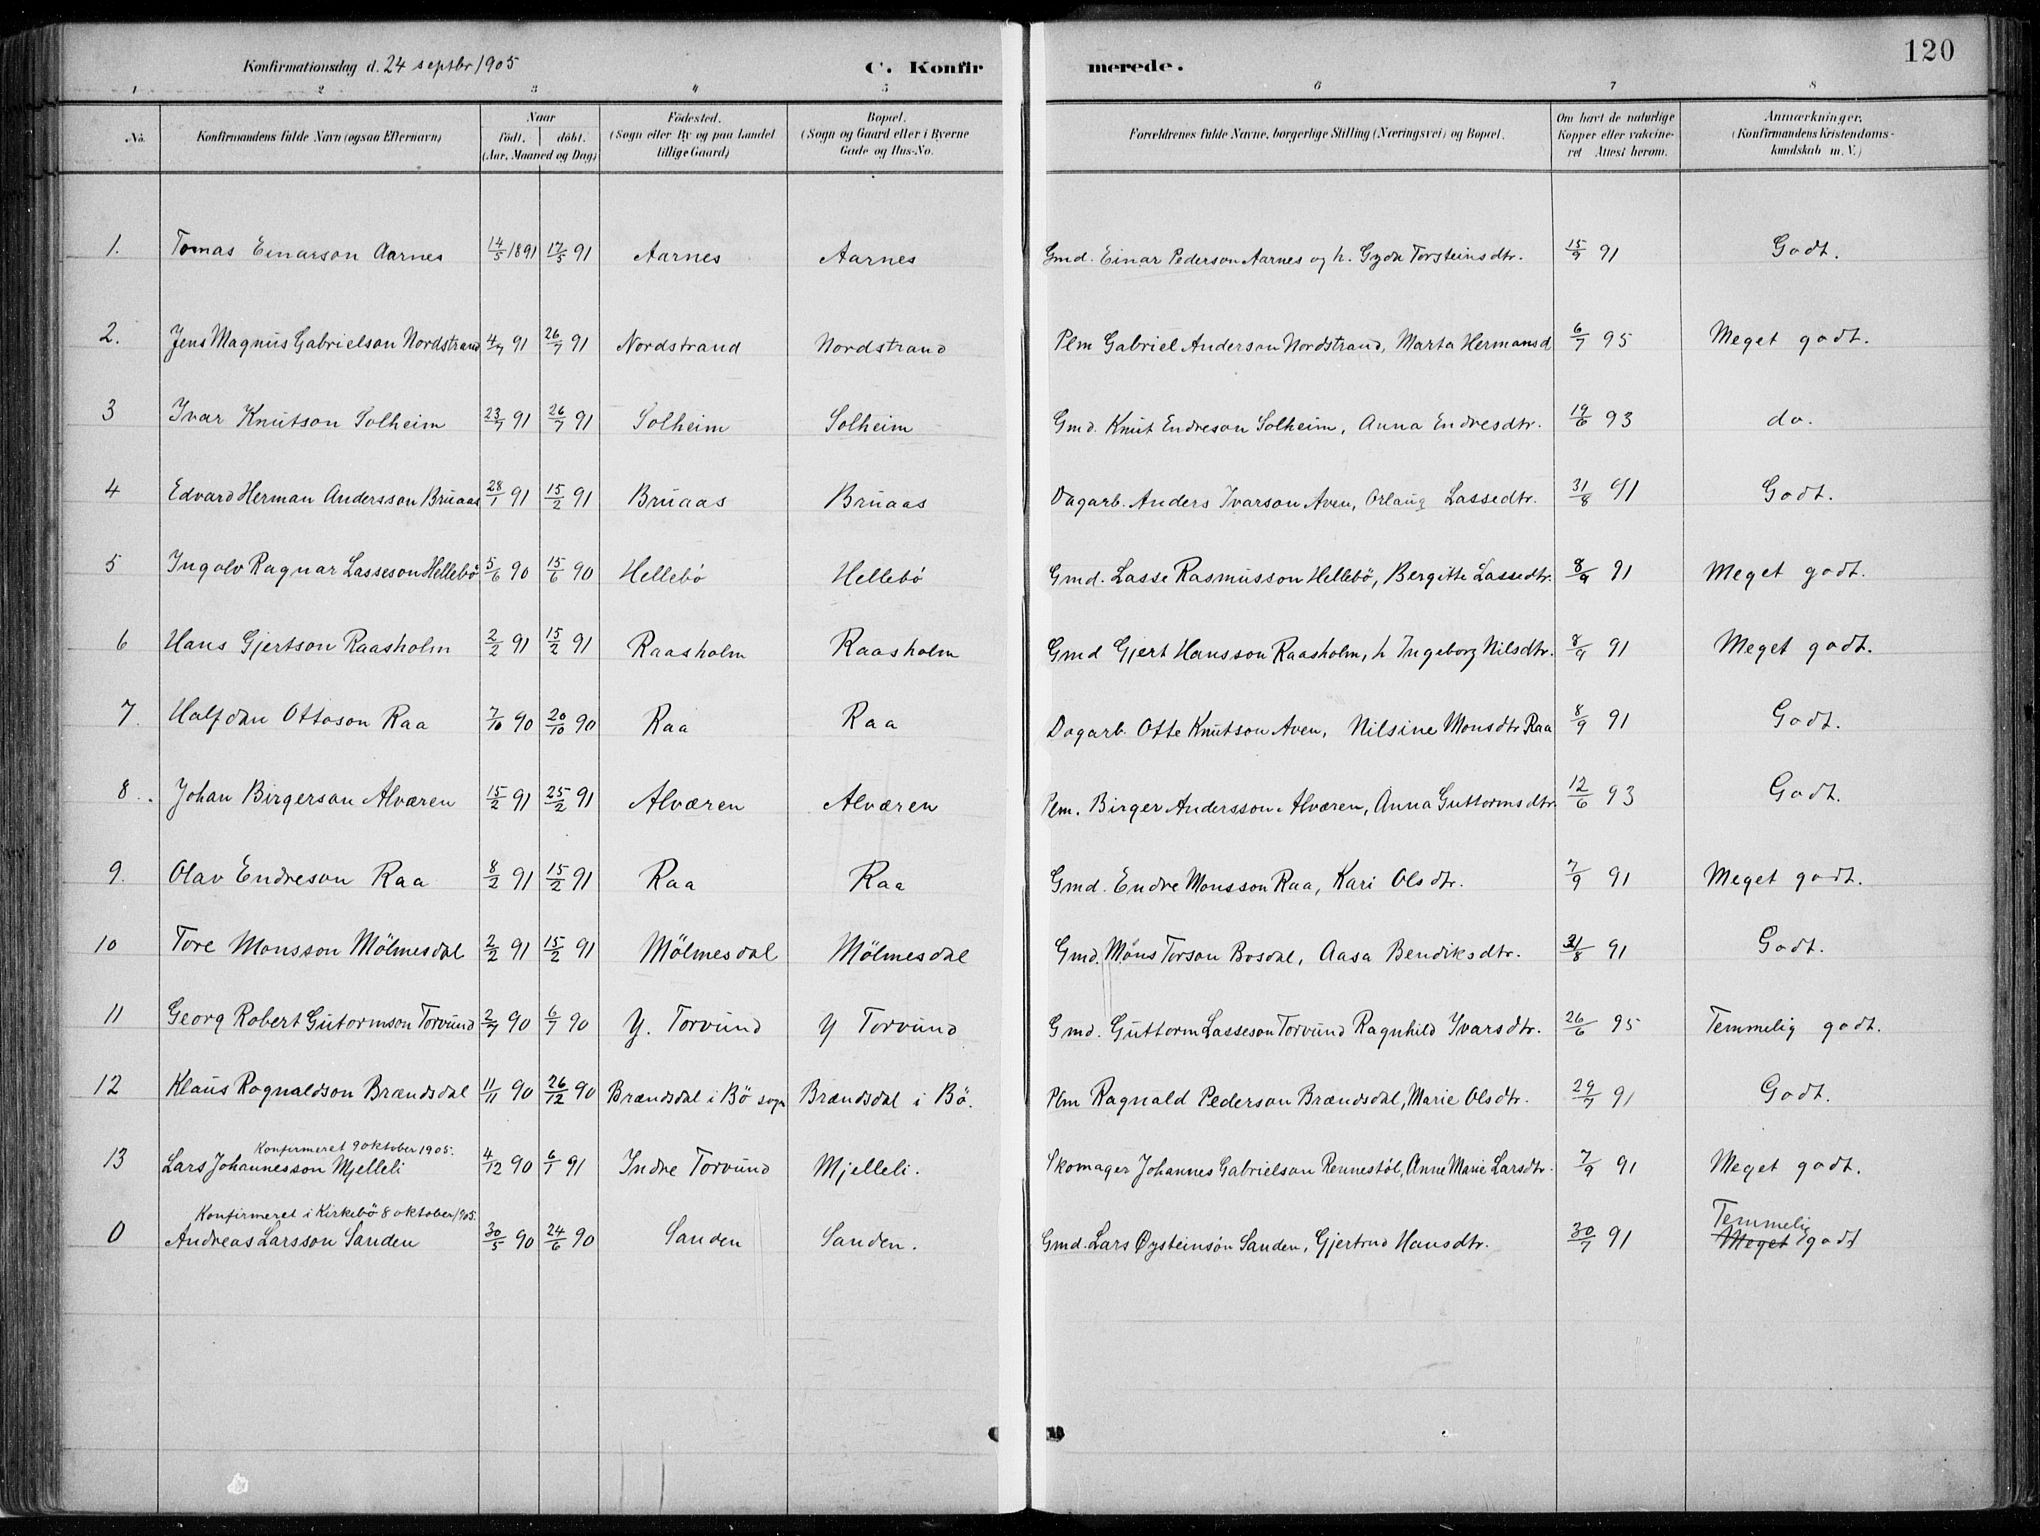 120
Konfirmationsdag d. 24 septbr 1905
C. Konfirmerede.
1 2 3 4 5 6 7 8
No. | Konfirmandens fulde Navn (ogsaa Efternavn) | Naar födt. döbt. (Aar, Maaned og Dag) | Födested. (Sogn eller By og paa Landet tillige Gaard) | Bopæl. (Sogn og Gaard eller i Byerne Gade og Hus-No. | Forældrenes fulde Navne, borgerlige Stilling (Næringsvei) og Bopæl. | Om havt de naturlige Kopper eller vakcineret Attest herom. | Anmærkninger. (Konfirmandens Kristendomskundskab m. V.)
1. Tomas Einarson Aarnes 14/5 1891 17/5 91 Aarnes Aarnes Gmd. Einar Pederson Aarnes og h. Gyda Torsteinsdtr. 15/9 91 Godt.
2. Jens Magnus Gabrielson Nordstrand 4/7 91 26/7 91 Nordstrand Nordstrand Plm Gabriel Anderson Nordstrand, Marta Hermansd 6/7 95 Meget godt.
3 Ivar Knutson Solheim 23/7 91 26/7 91 Solheim Solheim Gmd. Knut Endreson Solheim, Anna Endresdtr. 19/6 93 do.
4 Edvard Herman Andersson Bruaas 28/1 91 15/2 91 Bruaas Bruaas Dagarb. Anders Ivarson Aven, Orlaug Lassedtr. 31/8 91 Godt.
5 Ingolv Ragnar Lasseson Hellebö 5/6 90 15/6 90 Hellebö Hellebö Gmd. Lasse Rasmusson Hellebö, Bergitte Lassedtr. 8/9 91 Meget godt.
6 Hans Gjertson Raasholm 2/2 91 15/2 91 Raasholm Raasholm Gmd Gjert Hansson Raasholm, h Ingeborg Nilsdtr. 8/9 91 Meget godt.
7. Halfdan Ottoson Raa 7/10 90 20/10 90 Raa Raa Dagarb. Otte Knutson Aven, Nilsine Monsdtr Raa 8/9 91 Godt.
8. Johan Birgerson Alværen 15/2 91 25/2 91 Alværen Alværen Plm. Birger Andersson Alværen, Anna Guttormsdtr. 12/6 93 Godt.
9. Olav Endreson Raa 8/2 91 15/2 91 Raa Raa Gmd. Endre Monsson Raa, Kari Olsdtr. 7/9 91 Meget godt.
10 Tore Monsson Mölmesdal 2/2 91 15/2 91 Mölmesdal Mölmesdal Gmd. Mons Torson Bosdal, Aasa Bendiksdtr. 31/8 91 Godt.
11 Georg Robert Gutormson Torvund 2/7 90 6/7 90 Y. Torvund Y Torvund Gmd. Guttorm Lasseson Torvund Ragnhild Ivarsdtr. 26/6 95 Temmelig godt.
12 Klaus Ragnaldson Brændsdal 11/11 90 26/12 90 Brændsdal i Bö sogn Brændsdal i Bö. Plm Ragnald Pederson Brændsdal, Marie Olsdtr. 29/7 91 Godt.
Konfirmeret 9 oktober 1905.
13 Lars Johannesson Mjelleli 4/12 90 6/1 91 Indre Torvund Mjelleli. Skomager Johannes Gabrielson Rennestöl, Anne Marie Larsdtr. 7/9 91 Meget godt.
Konfirmeret i Kirkebö 8 oktober 1905.
0 Andreas Larsson Sanden 30/5 90 24/6 90 Sanden Sanden. Gmd. Lars Øysteinsön Sanden, Gjertrud Hansdtr. 30/7 91 Temmelig Meget godt